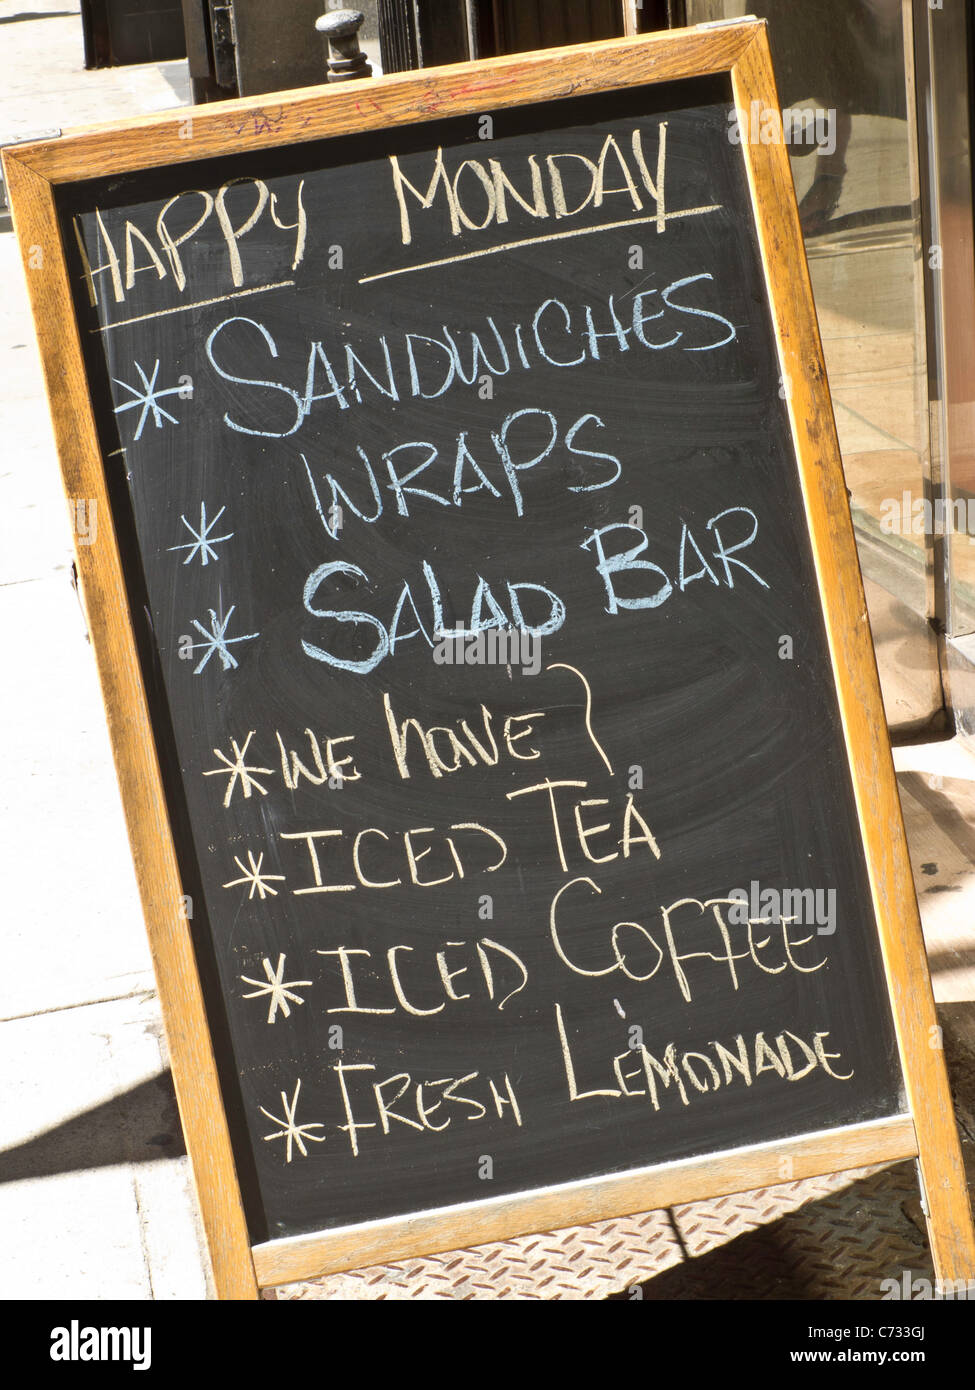 HAPPY MONDAY
* SANDWICHES
* WRAPS
* SALAD BAR
* WE have }
* ICED TEA
* ICED COFFEE
* FRESH LEMONADE
alamy
Image ID: C733GJ
www.alamy.com